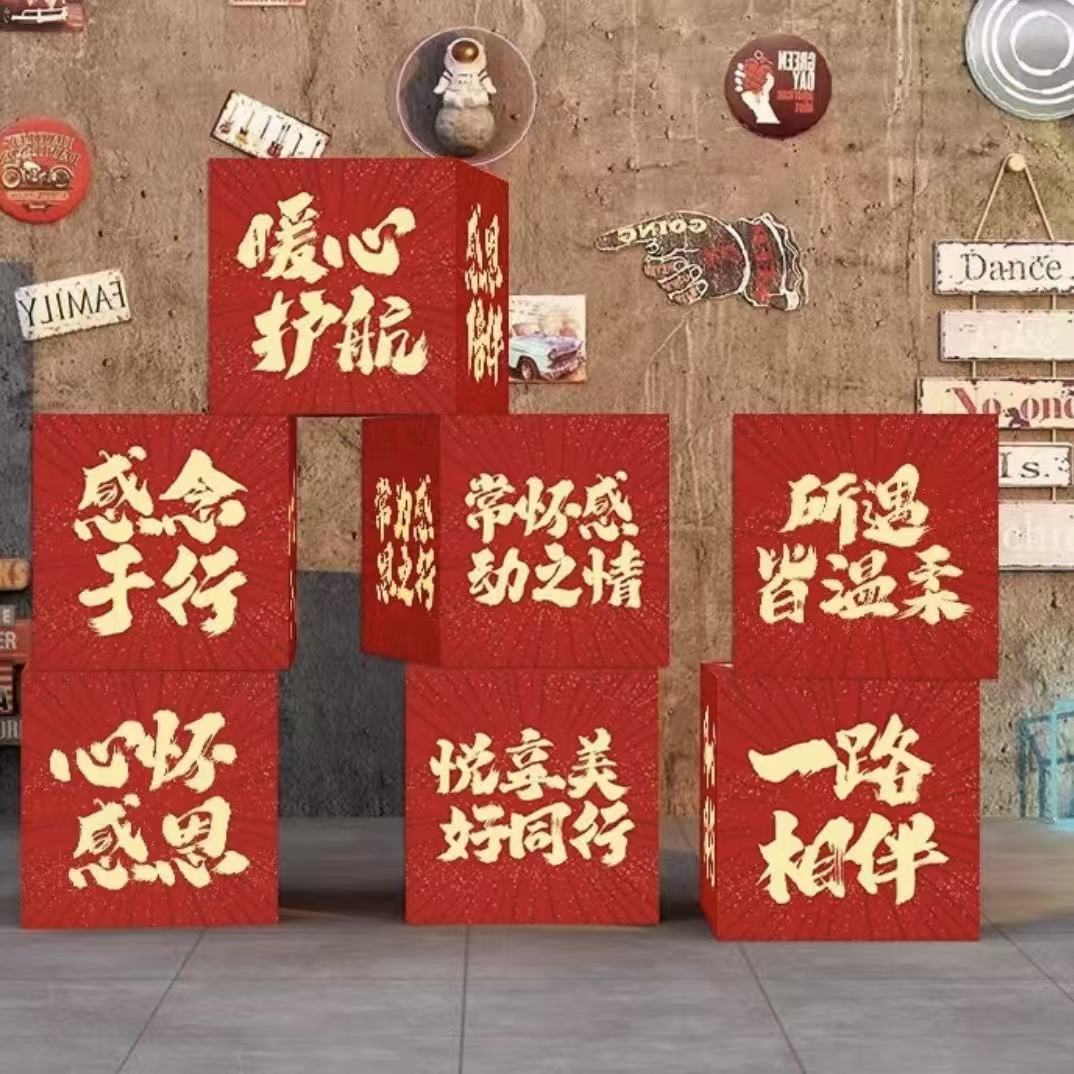 GREEN
DAY
暖心
护航
感恩
相伴
GOING
FAMILY
Dance
No one
Is.
感念
于行
常怀感
动之情
所遇
皆温柔
心怀
感恩
悦享美
好同行
一路
相伴